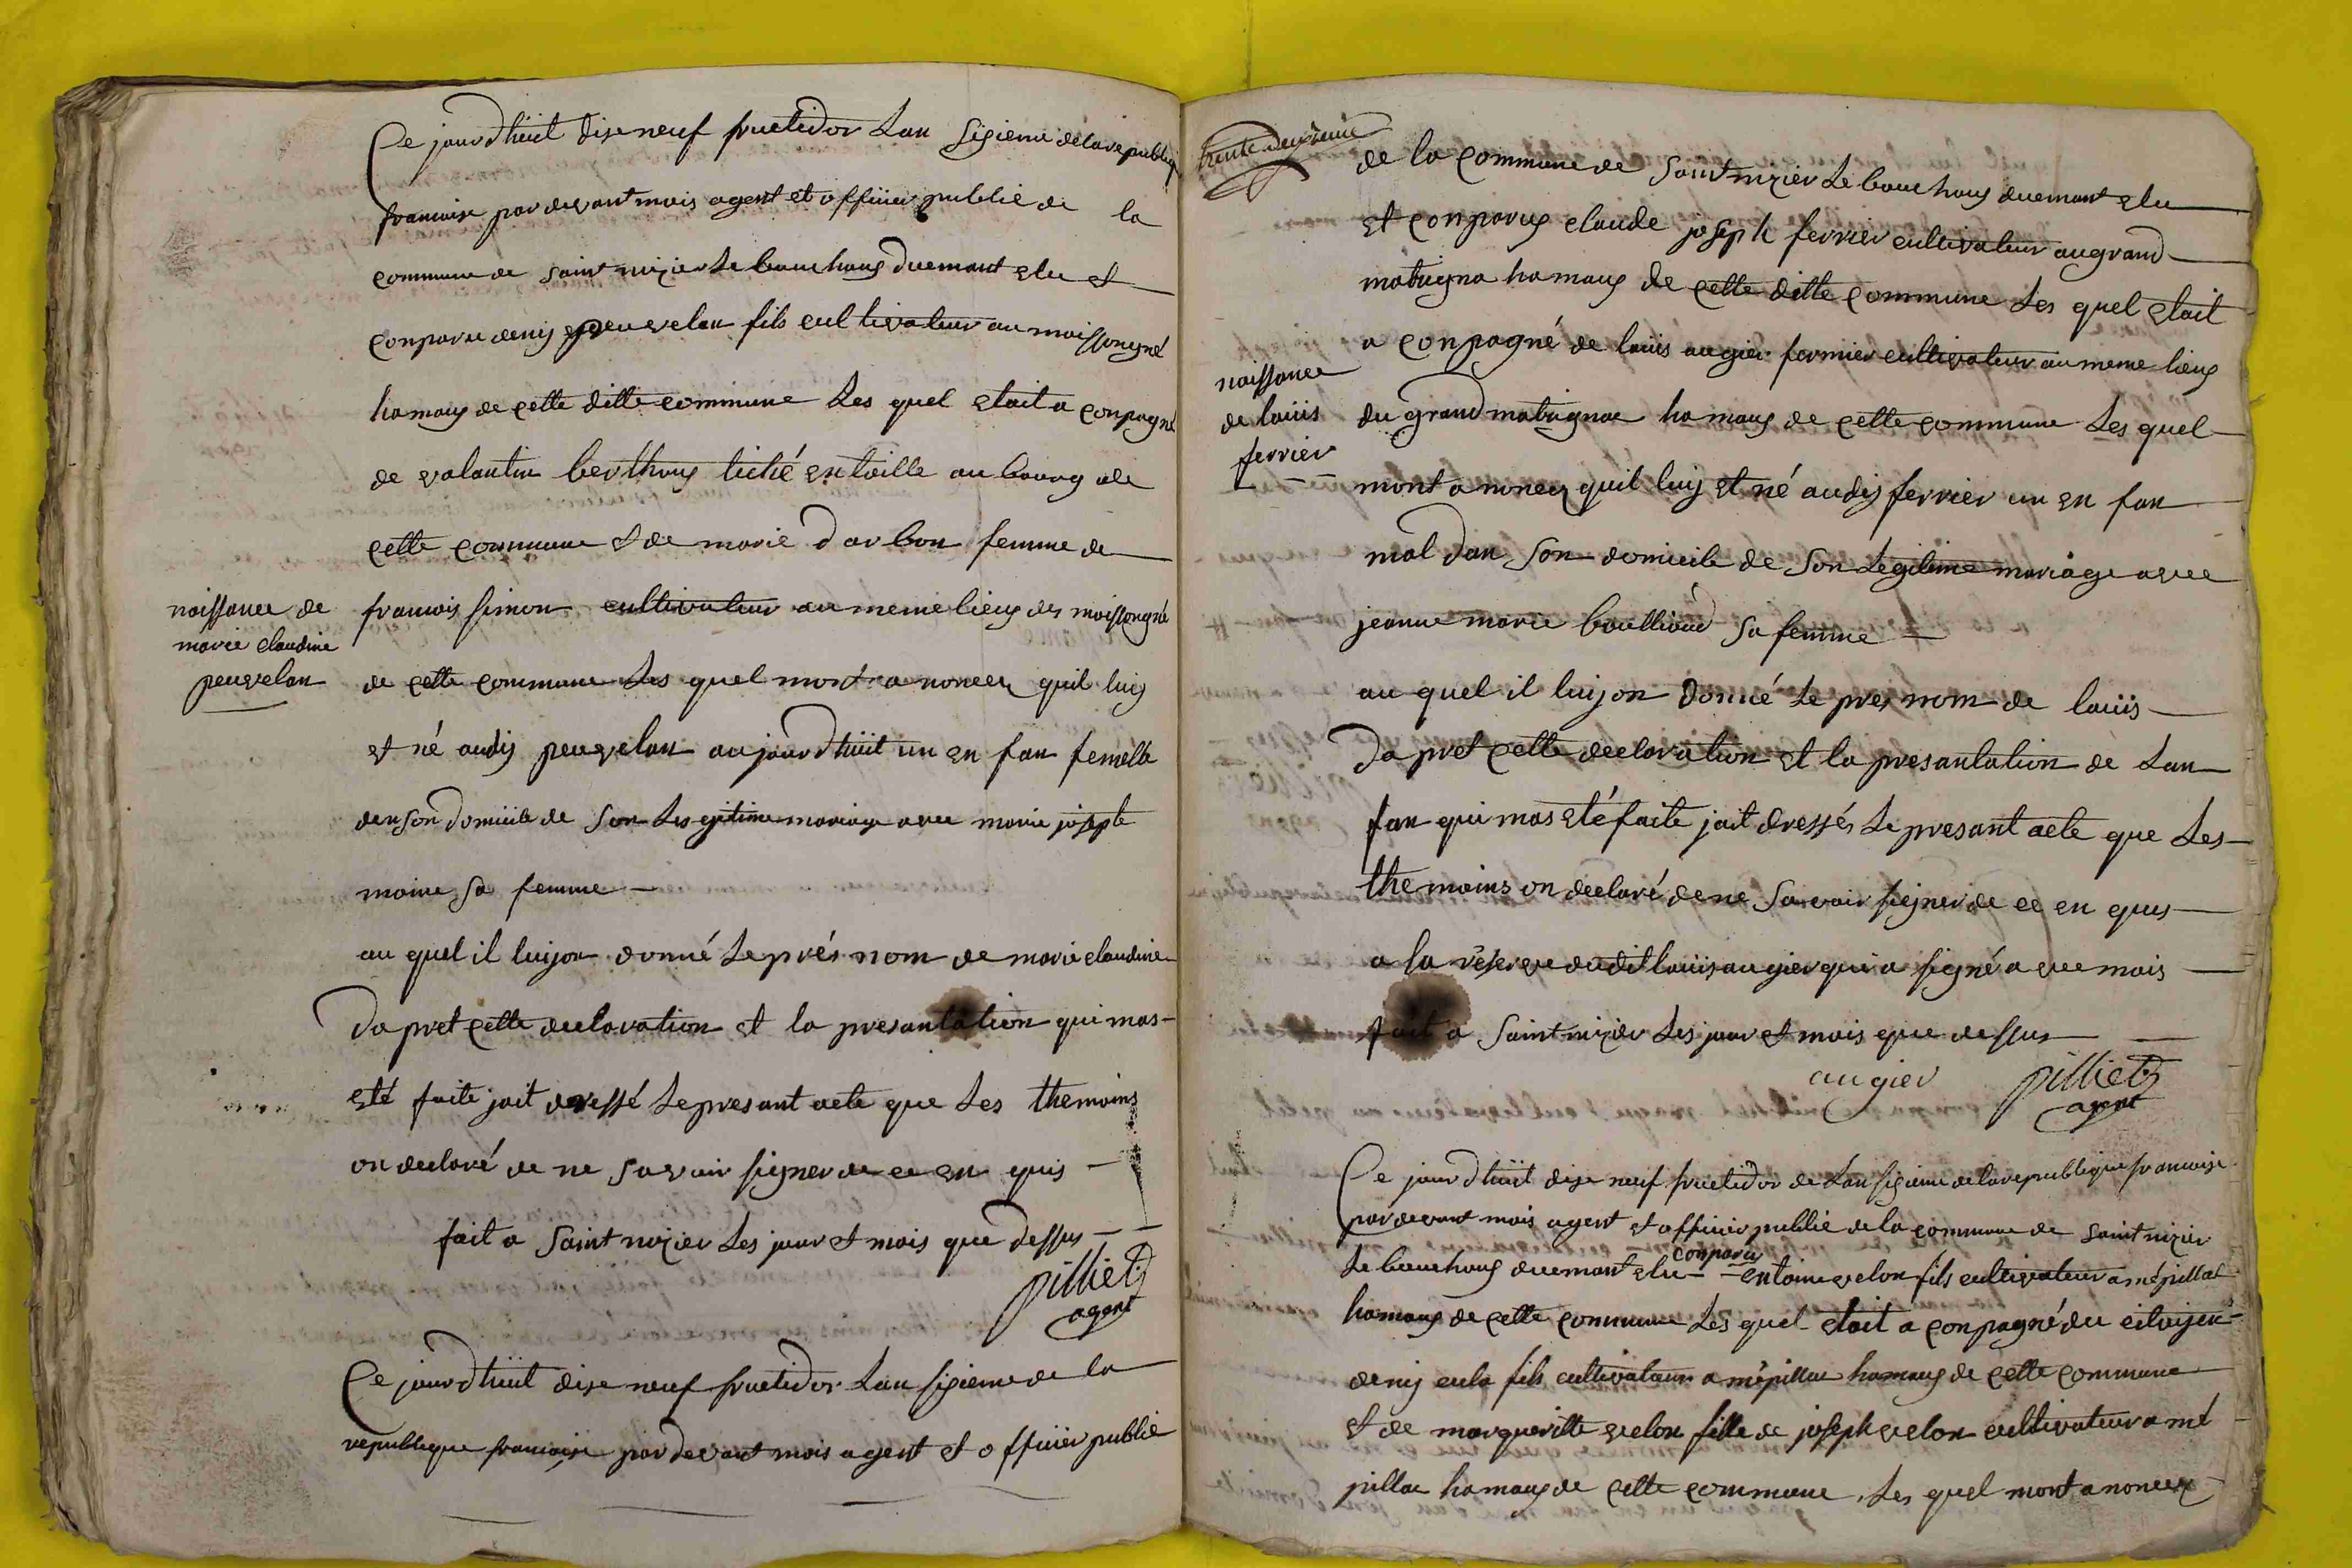 Ce jourdhüit dise neuf fructidor Lan Sisieme delarepublique
francoise pardevant mois agent et officier publie de la
commune de saint nizier Le bouchous duemant elu et
conparu denis peuvelan fils cultivateur au moissongné
hamaus de cette ditte commune Les quel etait a conpagné
de valantin berthous tiché entoille au bourg de
cette commune et de marie darbon femme de
naissance de
marie claudine
peuvelan
francois simon cultivateur au meme lieus des moissongné
de cette commune Les quel mont a noncer quil luis
et né audis peuvelan aujourdhüit un en fan femelle
dan son domicile de son Les gitime mariage avec marie joseple
moine sa femme
au quel il luijon donné Le prés nom de marie claudine
Da pret cette declaration et la presantation qui mas
eté faite jait dressé Le presant acte que Les themoins
on declaré de ne savoir signer de ce en quis
fait a saint nizier Les jour et mois que dessus
pilliet
agent
Ce jourdhüit dise neuf fructidor Lan sisieme de la
republique francoise pardevant mois agent et officier publie
trente deuxieme
de la commune de saint nizier Le bouchous duemant elu
et conparus claude joseph ferrier cultivateur au grand
matrigna hamaus de cette ditte commune Les quel etait
a conpagné de lauis augier fermier cultivateur au meme lieus
naissance
de lauiis
ferrier
du grand matrignae hamaus de cette commune Les quel
mont a noncer quil luis et né audis ferrier un en fan
mal dan son domicile de son Legitime mariage avec
jeanne marie bouttioud sa femme
au quel il luijon donné Le pres nom de lauiis
Da pret cette declaration et la presantation de Lan
fan qui mas eté faite jait dressés Le presant acte que Les
themoins on declaré de ne savoir signer de ce en ques
a la reserve dudit lauiis augier qui a signé a vec mois
fait a saint nizier Les jour et mois que dessus
augier pilliet
agent
Ce jourdhüit dise neuf fructidor de Lan sisieme delarepublique francoise
pardevant mois agent et officier publie de la commune de saint nizier
conparu
Le bouchous duemant elu entoine velon fils cultivateur a mépillat
hamaus de cette commune Les quel etait a conpagné du citoijen
denis cula fils cultivateur a mépillae hamaus de cette commune
et de margueritte velon fille de joseph velon cultivateur a mé
pillae hamaus de cette commune Les quel mont a noncer